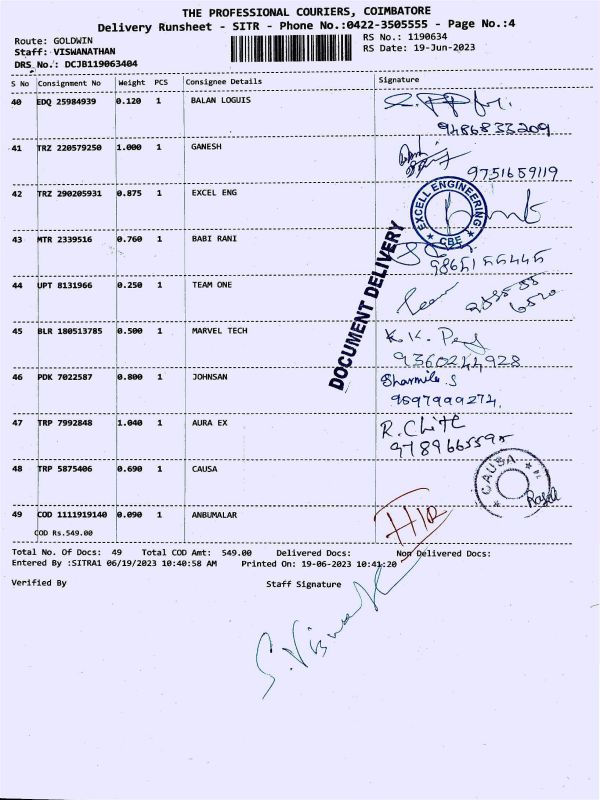 THE PROFESSIONAL COURIERS, COIMBATORE
Delivery Runsheet - SITR - Phone No.:0422-3505555 - Page No.:4
Route: GOLDWIN
Staff: VISWANATHAN
DRS No.: DCJB119063404
RS No.: 1190634
RS Date: 19-Jun-2023
S No Consignment No Weight PCS Consignee Details Signature
40 EDQ 25984939 0.120 1 BALAN LOGUIS
9486833209
41 TRZ 220579250 1.000 1 GANESH
9751659119
42 TRZ 290205931 0.875 1 EXCEL ENG
EXCELL ENGINEERING
CBE
43 MTR 2339516 0.760 1 BABI RANI
44 UPT 8131966 0.250 1 TEAM ONE
Team
DOCUMENT DELIVERY
45 BLR 180513785 0.500 1 MARVEL TECH
K.K.
9360244928
46 PDK 7022587 0.800 1 JOHNSAN
Sharmila S
9597999274.
47 TRP 7992848 1.040 1 AURA EX
R.
48 TRP 5875406 0.690 1 CAUSA
CAUSA
49 COD 1111919140 0.090 1 ANBUMALAR
COD Rs.549.00
Total No. Of Docs: 49 Total COD Amt: 549.00 Delivered Docs: Non Delivered Docs:
Entered By :SITRA1 06/19/2023 10:40:58 AM Printed On: 19-06-2023 10:41:20
Verified By Staff Signature